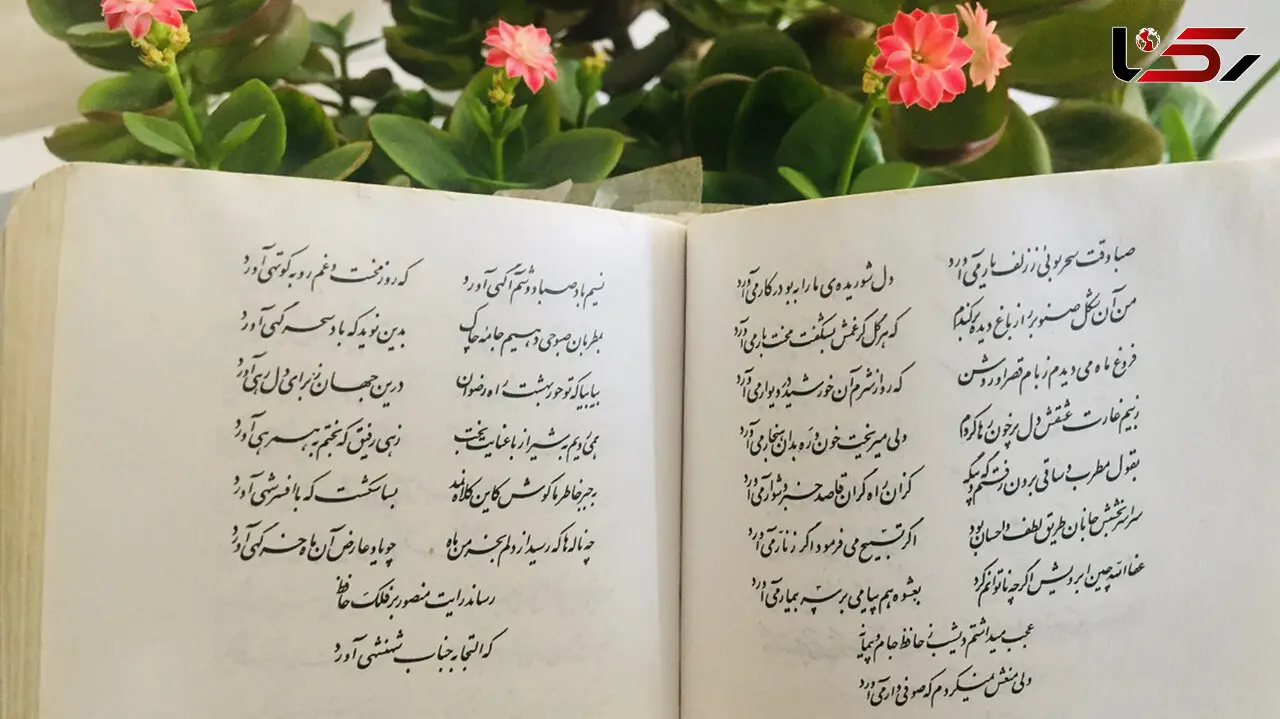 رکنا
صبا وقت سحر بوئی ز زلف یار می آورد دل شوریده ی ما را به بو در کار می آورد
من آن شکل صنوبر را ز باغ دیده برکندم که هر گل کز غمش بشکفت محنت بار می آورد
فروغ ماه می دیدم ز بام قصر او روشن که رو از شرم آن خورشید در دیوار می آورد
ز بیم غارت عشقش دل پرخون رها کردم ولی میریخت خون و ره بدان هنجار می آورد
بقول مطرب و ساقی برون رفتم گه و بیگه کزان راه گران قاصد خبر دشوار می آورد
سراسر بخشش جانان طریق لطف و احسان بود اگر تسبیح می فرمود اگر زنار می آورد
عفا الله چین ابرویش اگر چه ناتوانم کرد بعشوه هم پیامی بر سر بیمار می آورد
عجب میداشتم دیشب ز حافظ جام و پیمانه
ولی منعش نمیکردم که صوفی وار می آورد
نسیم باد صبا دوشم آگهی آورد که روز محنت و غم رو به کوتهی آورد
بمطربان صبوحی دهیم جامه چاک بدین نوید که باد سحر گهی آورد
بیا بیا که تو حور بهشت را رضوان درین جهان ز برای دل رهی آورد
همی رویم به شیراز با عنایت بخت زهی رفیق که بختم به همرهی آورد
به جبر خاطر ما کوش کاین کلاه نمد بسا شکست که با افسر شهی آورد
چه ناله ها که رسید از دلم بخرمن ماه چو یاد عارض آن ماه خرگهی آورد
رساند رایت منصور بر فلک حافظ
که التجا به جناب شهنشهی آورد